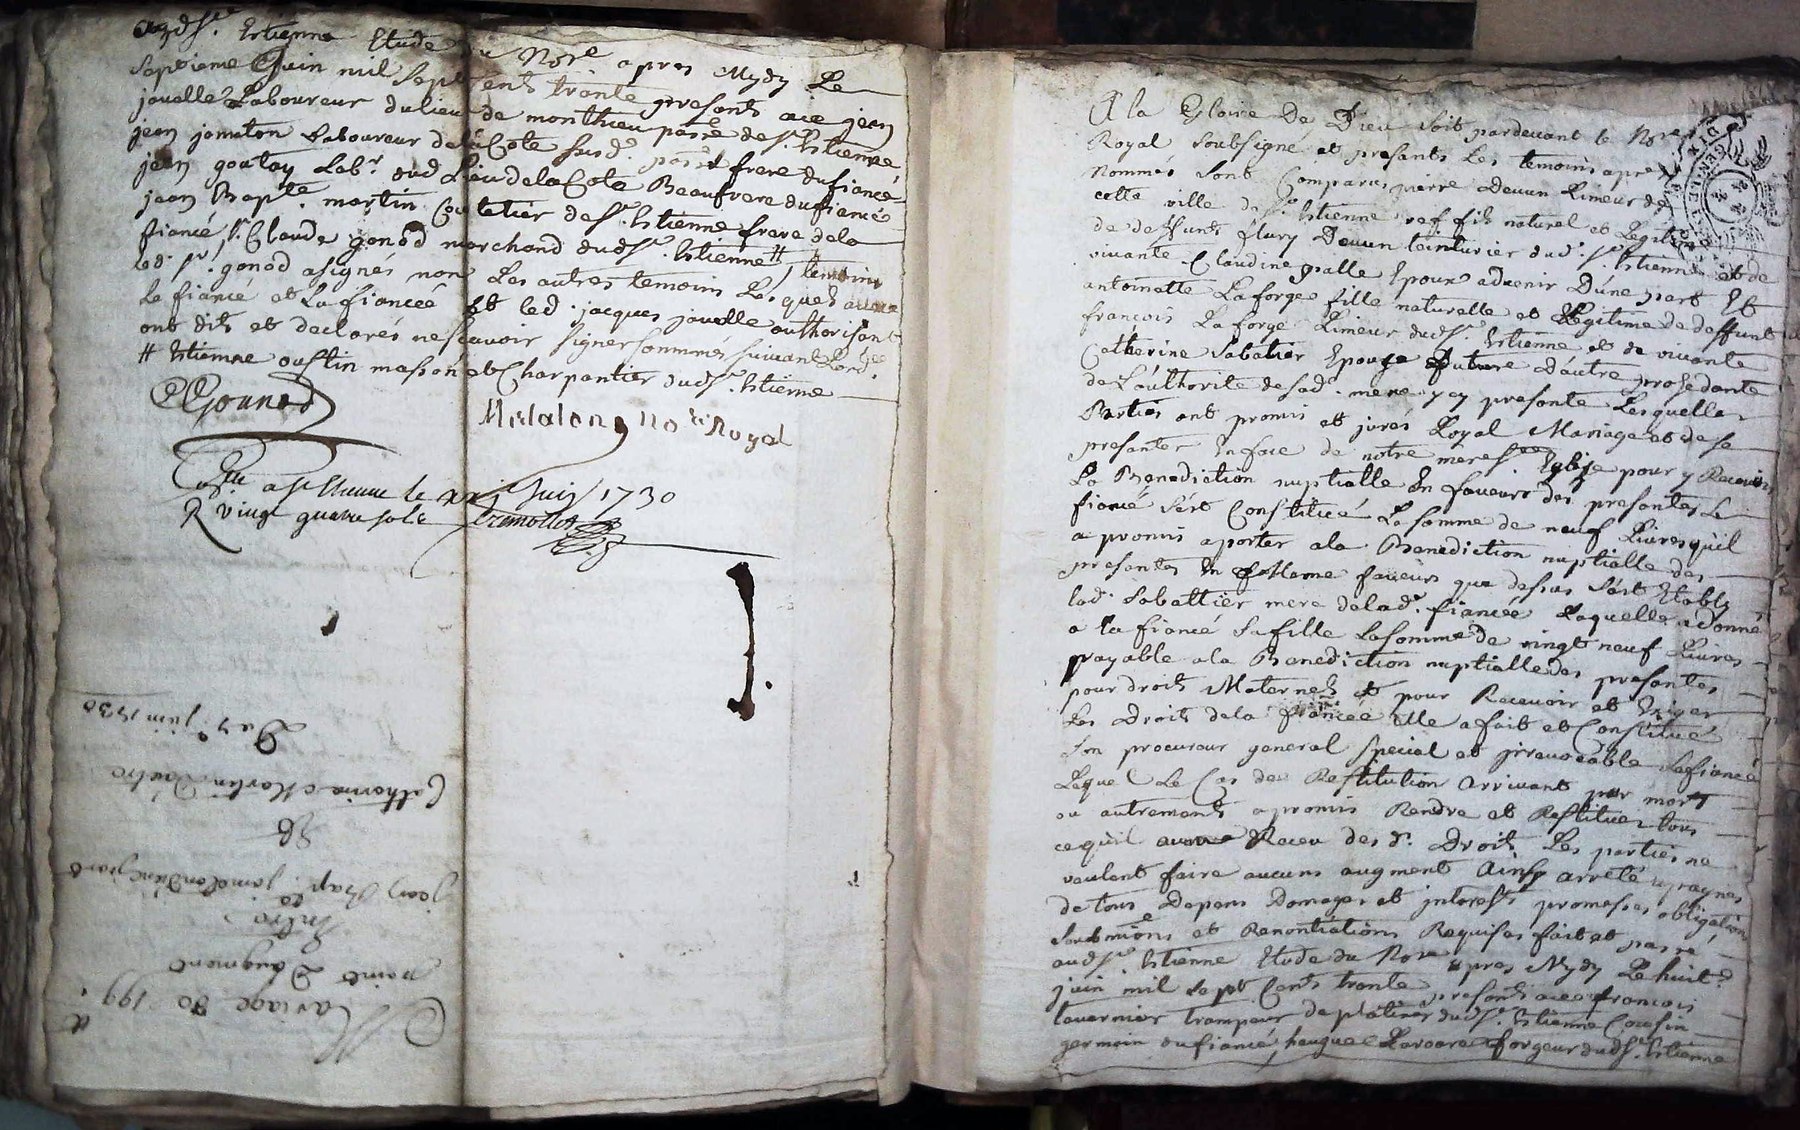 audSt. Estienne Etude du Nore apres Mydy Le
septieme Juin mil sept cents trante presents ace jean
jouelle Laboureur du lieu de monthieu passe de St. Estienne
jean jomaton Laboureur de la Cote susd. frere du fiancé
jean goutay Labr. dud Lieu de la Cote Beaufrere du fiancé
jean Bapte. martin Coutelier de St. Estienne frere de la
fiancé, Sr. Claude gonod marchand dudSt. Estienne # temoins
led. Sr. gonod a signés non Les autres temoins Lesquels avec
Le fiancé et La fiancéé et led. jacques jouelle authorisant
ont dits et declarés ne scavoir signer sommés suivant Lordce
# Estienne oustin masson et Charpantier dudSt. Estienne
CGonnod
Metalon No.re Royal
a St Etienne le xxj Juin 1730
R vingt quatre sols
Mariage 80 199
point Daugment
Entre
jean Bapte. jomaton Dune part
Et
Catherine Martin Dautre
Du 7e. juin 1730
A la Gloire De Dieu soit pardevant le Nore
Royal soubsigné et presants Les temoins apres
Nommés sont Comparus pierre deuun Limeur de
cette ville de St. Estienne fils naturel et Legitime
de deffunt flury Deuun teinturier dud. St. Estienne et de
vivante Claudine palle Epoux advenir Dune part Et
antoinette Laforge fille naturelle et Legitime de deffunt
francois Laforge Limeur dudSt. Estienne et de vivante
Catherine Sabatier Epouze future D'autre prosedante
de L'authorite de sad. mere y cy presente Lesquelles
Parties ont promis et jurés Loyal Mariage et de se
presenter En face de notre mere Ste Eglize pour y Recevoir
La Benediction nuptialle En faveurs des presentes Le
fiancé s'est Constitué La somme de neuf Livres qu'il
a promis aporter a la Benediction nuptialle des
presentes En Meme faveurs que dessus s'est Etably
lad. Sabattier mere de lad. fiancéé Laquelle a donné
a la fiancé sa fille La somme de vingt neuf Livres
payable a la Benediction nuptialle des presentes
pour droits Maternels et pour Recevoir et Exiger
Les Droits de la fiancéé Elle a fait et Constitué
son procureur general special et jrrevocable Le fiancé
Lequel Le Cas de Restitution arrivant par mort
ou autrements a promis Rendre et Restituer tous
ce qu'il aura Receu des d. Droits Les parties ne
voulant faire aucuns augment Ainsy arreté a paynes
de tous Depens Domages et jnterests promesses obligation
soubmions et Renontiations Requises fait et passé
audSt. Estienne Etude du Nore apres Mydy Le huite.
juin mil sept Cents trante presents ace francois
tavernier trampeur de platines dudSt. Estienne Cousin
germain du fiancé, forgeur dudSt. Estienne